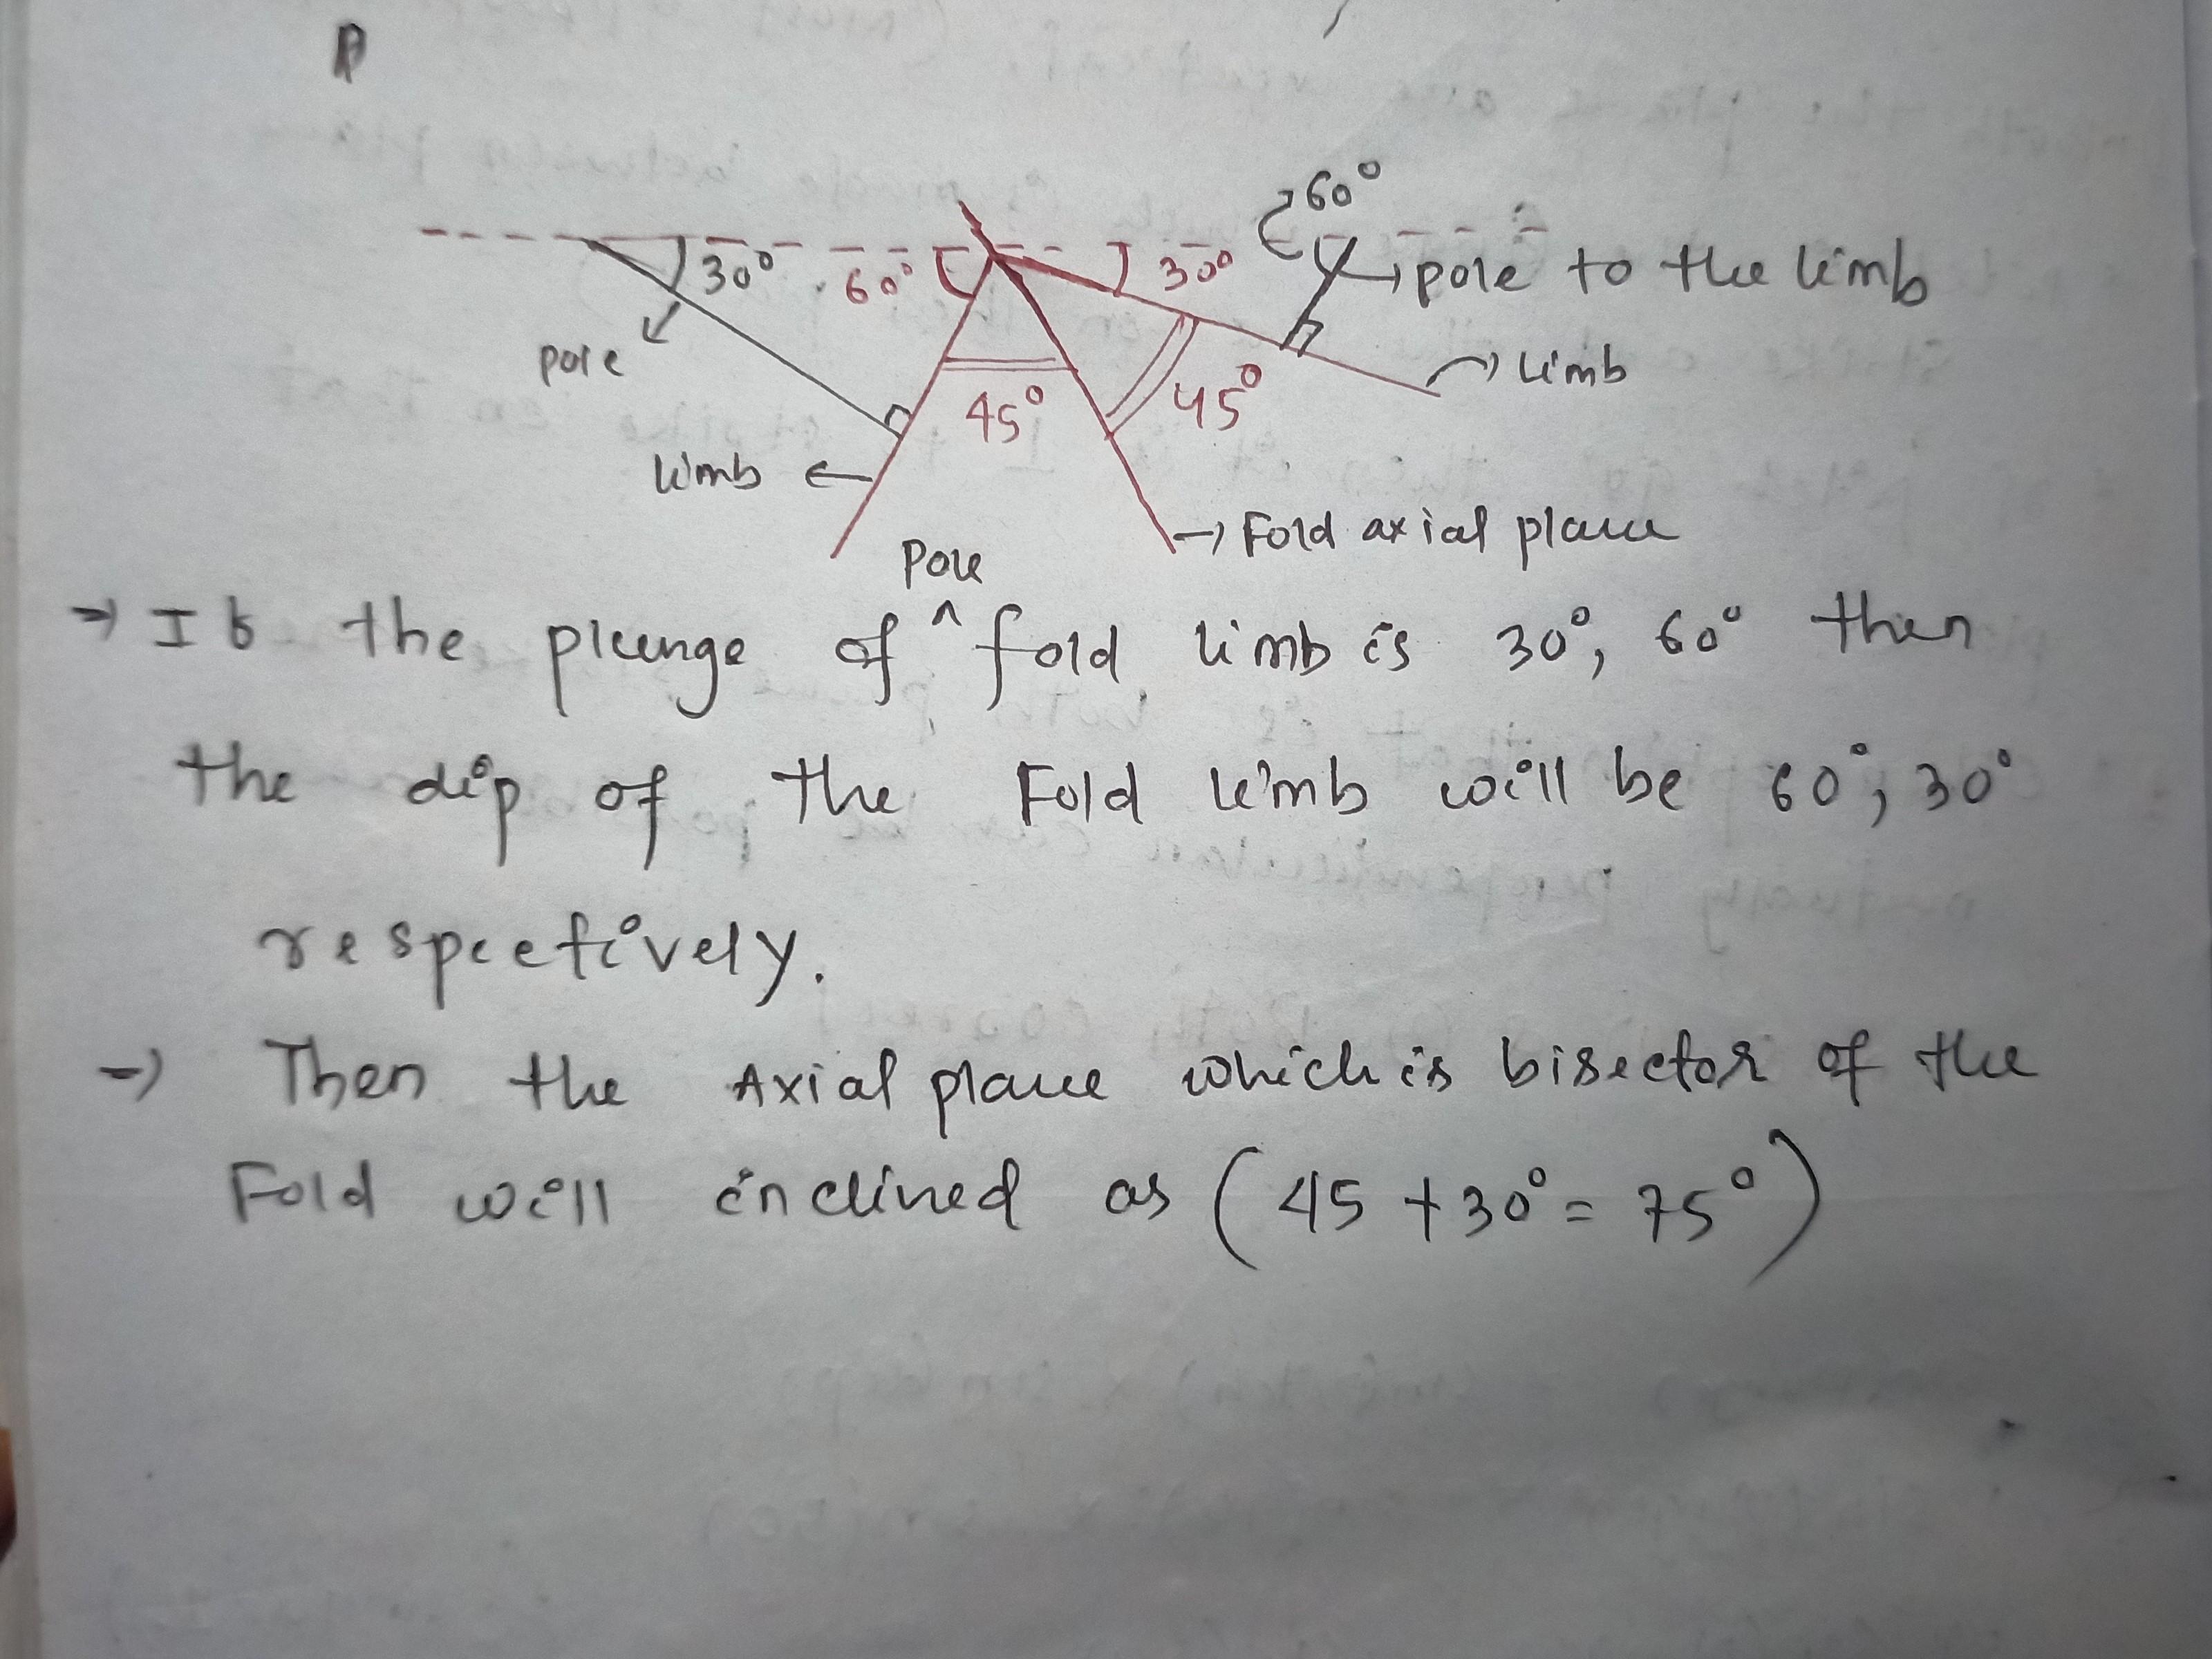 A
60°
30° 60° 30° pole to the limb
pole
limb
45° 45°
limb
Fold axial plane
Pole
⇒ If the plunge of ^ fold limb is 30°, 60° then
the dip of the Fold limb will be 60°, 30°
respectively.
⇒ Then the Axial plane which is bisector of the
Fold will inclined as (45 + 30° = 75°)